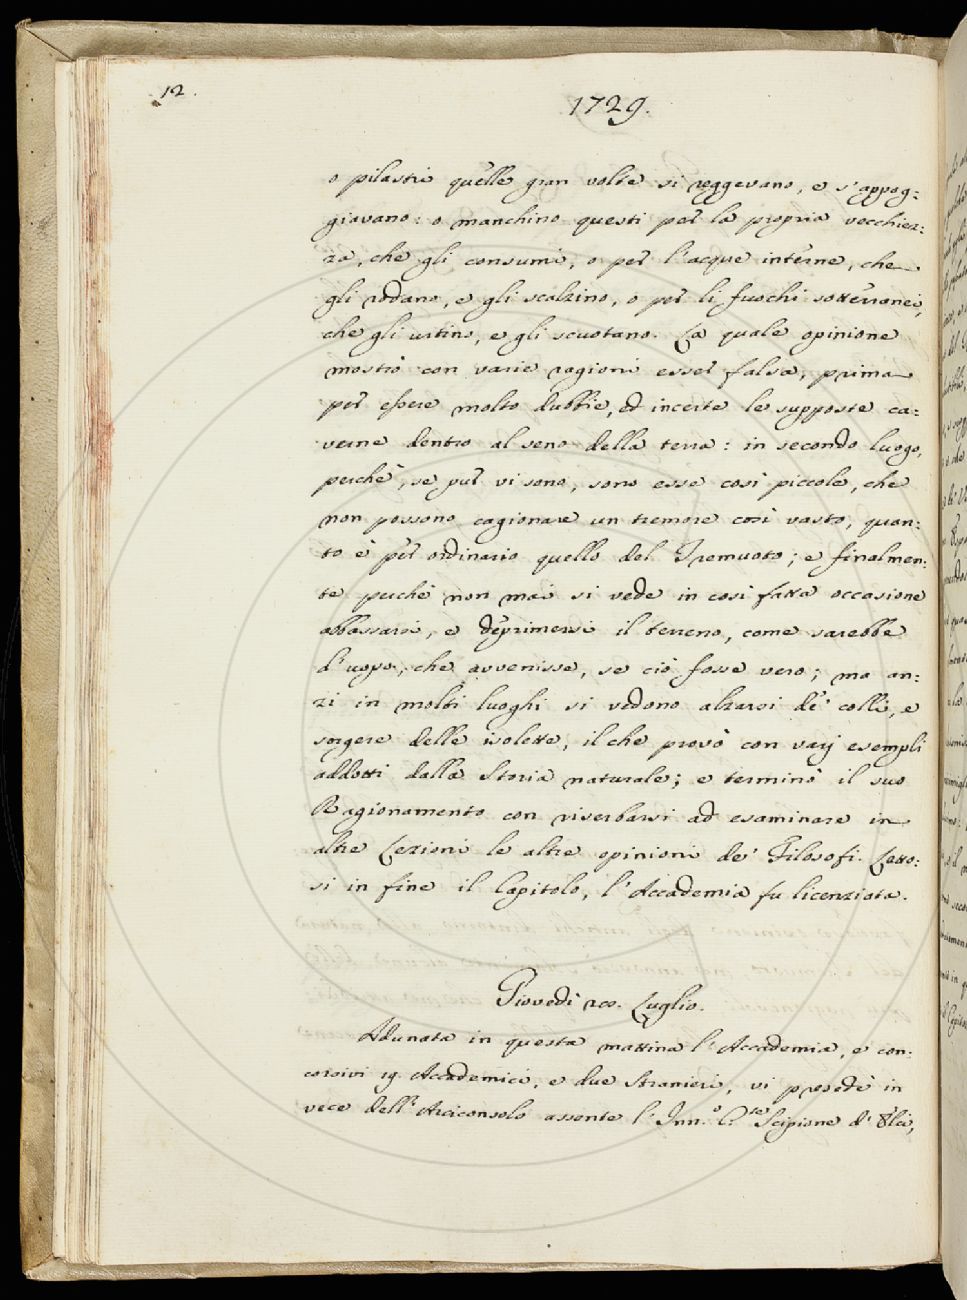 12.
1729.
o pilastri quelle gran volte si reggevano, e s'appog:
giavano: o manchino questi per la propria vecchiez:
za, che gli consumi, o per l'acque interne, che
gli rodano, e gli scalzino, o per li fuochi sotterranei,
che gli urtino, e gli scuotano. La quale opinione
mostrò con varie ragioni esser falsa, prima
per essere molto dubbie, ed incerte le supposte ca:
verne dentro al seno della terra: in secondo luogo,
perchè, se pur vi sono, sono esse così piccole, che
non possono cagionare un tremore così vasto, quan:
to è per ordinario quello del Tremuoto; e finalmen:
te perchè non mai si vede in così fatta occasione
abbassarsi, e deprimersi il terreno, come sarebbe
d'uopo, che avvenisse, se ciò fosse vero; ma an:
zi in molti luoghi si vedono alzarsi de' colli, e
sorgere delle isolette, il che provò con varj esempli
addotti dalla Storia naturale; e terminò il suo
Ragionamento con riserbarsi ad esaminare in
altre Lezioni le altre opinioni de' Filosofi. Letto:
si in fine il Capitolo, l'Accademia fu licenziata.
Giovedì 20. Luglio.
Adunata in questa mattina l'Accademia, e con:
corsivi 19. Accademici, e due Stranieri, vi presedè in
vece dell'Arciconsolo assente l'Inn.º C.te Scipione d'Elci,